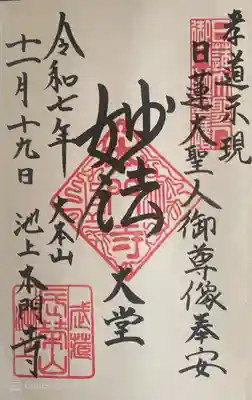 孝道示現
日蓮大聖人御尊像奉安
妙法
大堂
大本山
池上本門寺
令和七年
十一月十九日